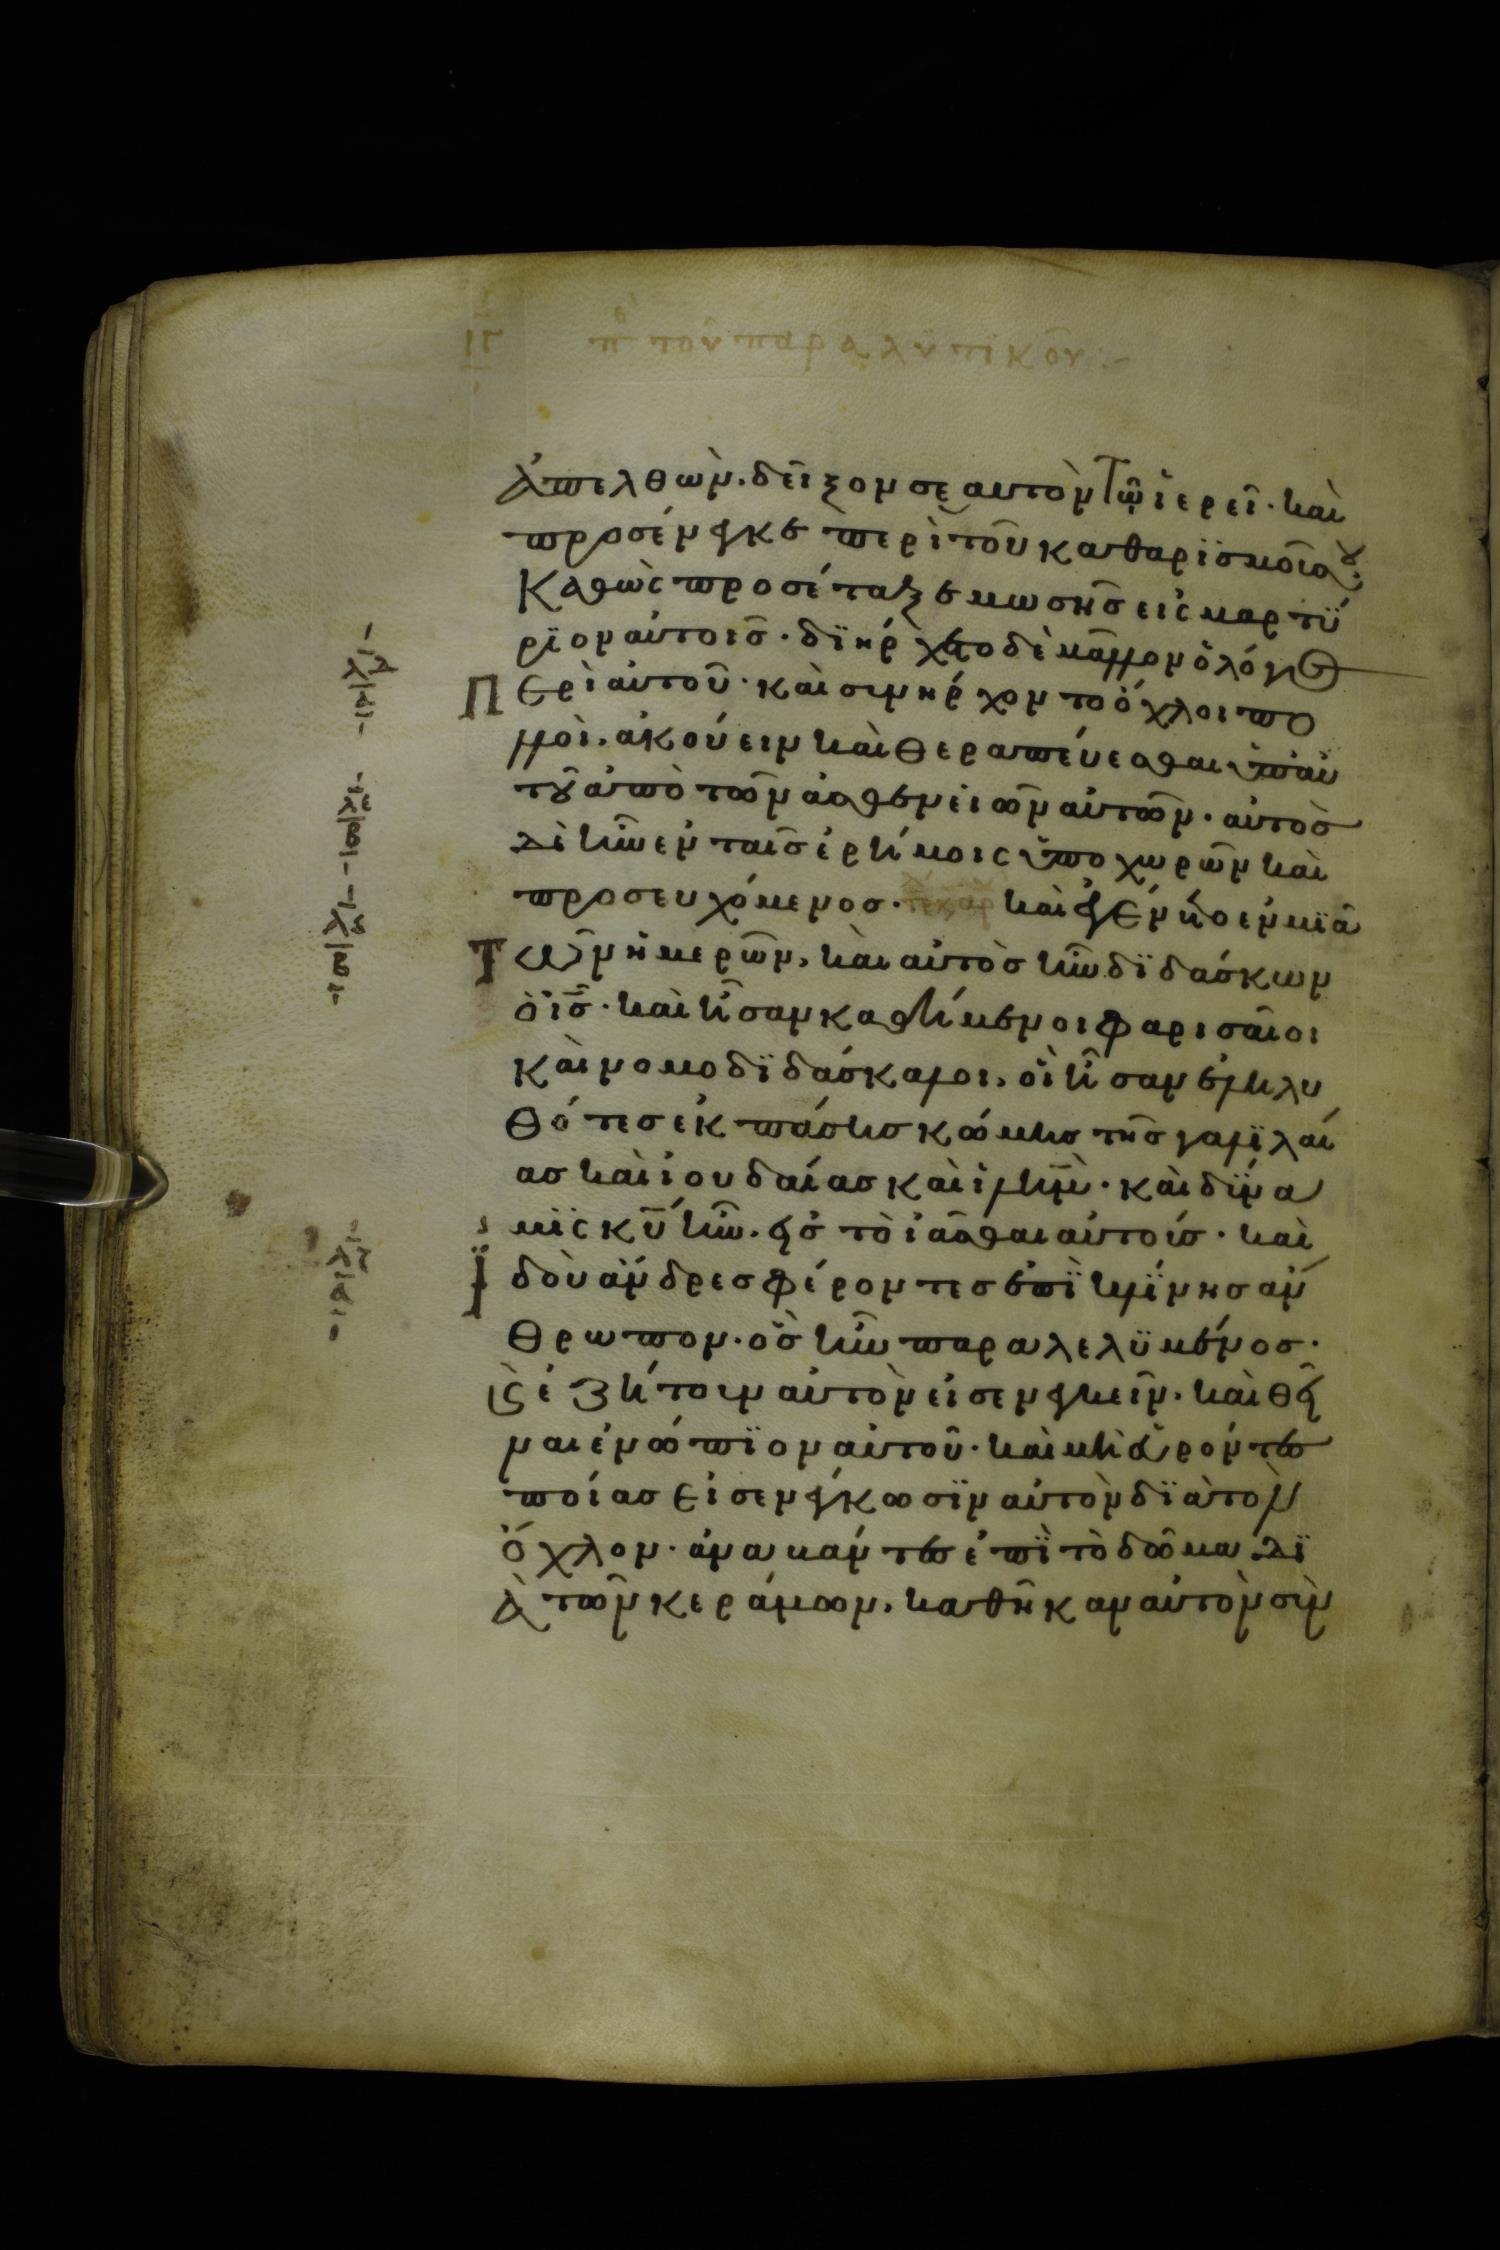 ιγ πε του παραλυτικου
ἀπελθὼν. δεῖξον σεαυτὸν τῶ ἱερεῖ· καὶ
προσένεγκε περὶ τοῦ καθαρϊσμοῦ σου·
Καθὼς προσέταξε μωσῆσ εἰς μαρτύ
ρϊον αὐτοῖσ· δϊήρχετο δὲ μᾶλλον ὁ λόγοσ
Περὶ αὐτοῦ· καὶ συνήρχοντο ὄχλοι πο
λλοὶ. ἀκούειν καὶ θεραπεύεσθαι ὑπ' αὐ
τοῦ ἀπὸ τῶν ἀσθενειῶν αὐτῶν· αὐτὸσ
δὲ ἦν ἐν ταῖσ ἐρήμοις ὑποχωρῶν καὶ
προσευχόμενοσ· καὶ ἐγένετο ἐν μϊᾶ
Τῶν ἡμερῶν, καὶ αὐτὸσ ἦν δϊδάσκων
ὁ ις· καὶ ἦσαν καθήμενοι φαρισαῖοι
καὶ νομοδϊδάσκαλοι. οἳ ἦσαν ἐληλυ
θότεσ ἐκ πάσησ κώμησ τῆσ γαλϊλαί
ασ καὶ ἰουδαίασ καὶ ιλημ· καὶ δύνα
μϊς κυ ἦν. εἰσ τὸ ἰᾶσθαι αὐτούσ· καὶ
Ϊδοὺ ἄνδρεσ φέροντεσ ἐπϊ κλίνησ ἄν
θρωπον. ὃσ ἦν παραλελϋμένοσ·
κ(αὶ) ἐζήτουν αὐτὸν εἰσενεγκεῖν. καὶ θεῖ
ναι ἐνώπϊον αὐτοῦ· καὶ μὴ εὑρόντεσ
ποίασ εἰσενέγκωσϊν αὐτὸν δϊὰ τὸν
ὄχλον· ἀναβάντεσ ἐπϊ τὸ δῶμα δϊ
ὰ τῶν κεράμων, καθῆκαν αὐτὸν σὺν
λδ
α
λε
β
λς
β
λζ
α